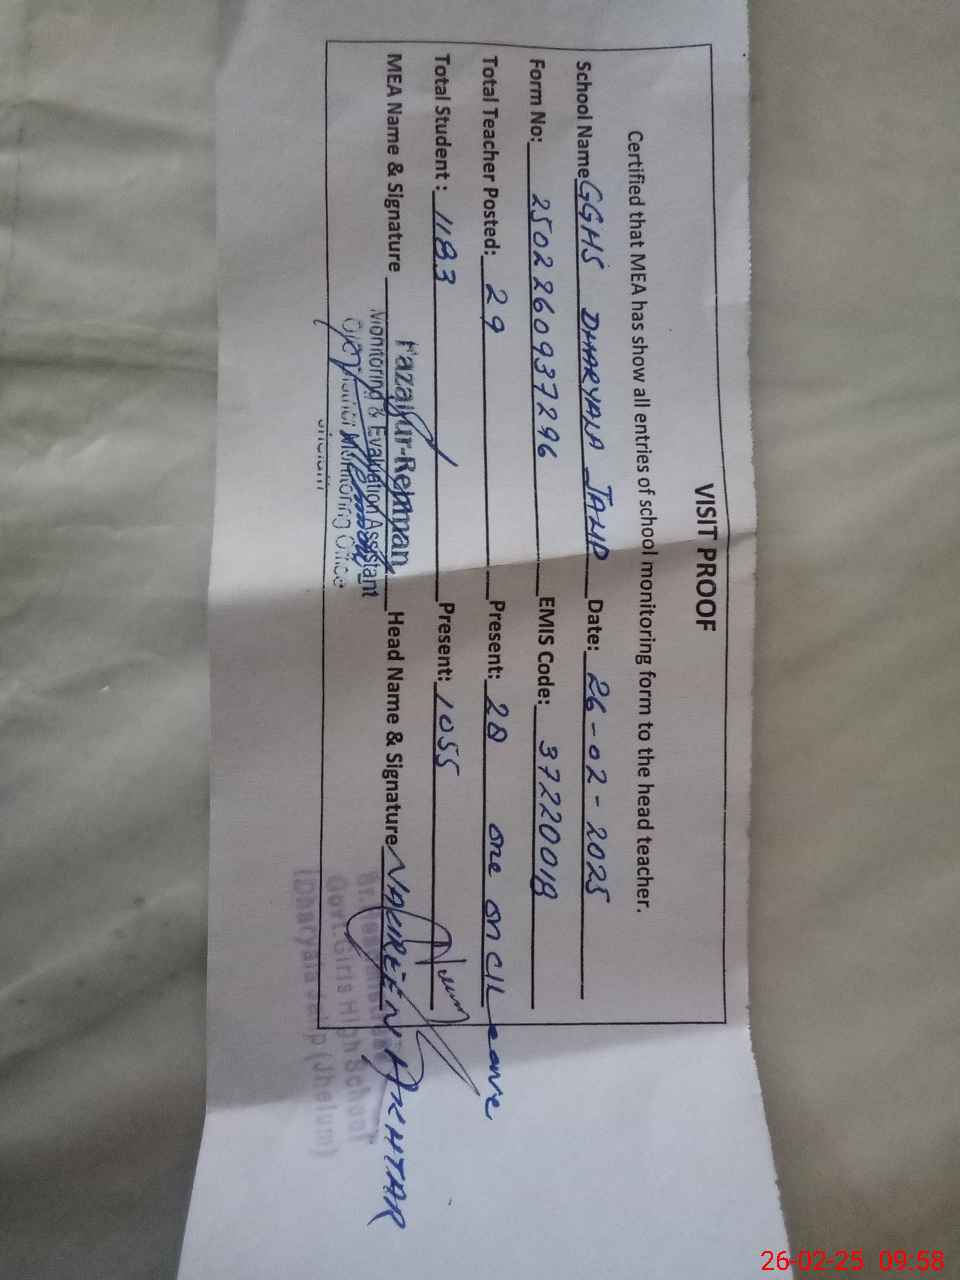 VISIT PROOF
Certified that MEA has show all entries of school monitoring form to the head teacher.
School Name GGHS DHARYALA JALIP Date: 26-02-2025
Form No: 2502260937296 EMIS Code: 37220018
Total Teacher Posted: 29 Present: 28 one on C/Leave
Total Student: 1183 Present: 1055
MEA Name & Signature Fazal-ur-Rehman Head Name & Signature NAUREEN AKHTAR
Monitoring & Evaluation Assistant
Monitoring Office
Jhelum
Govt. Girls High School
(Dharyala Jalip (Jhelum)
26-02-25 09:58